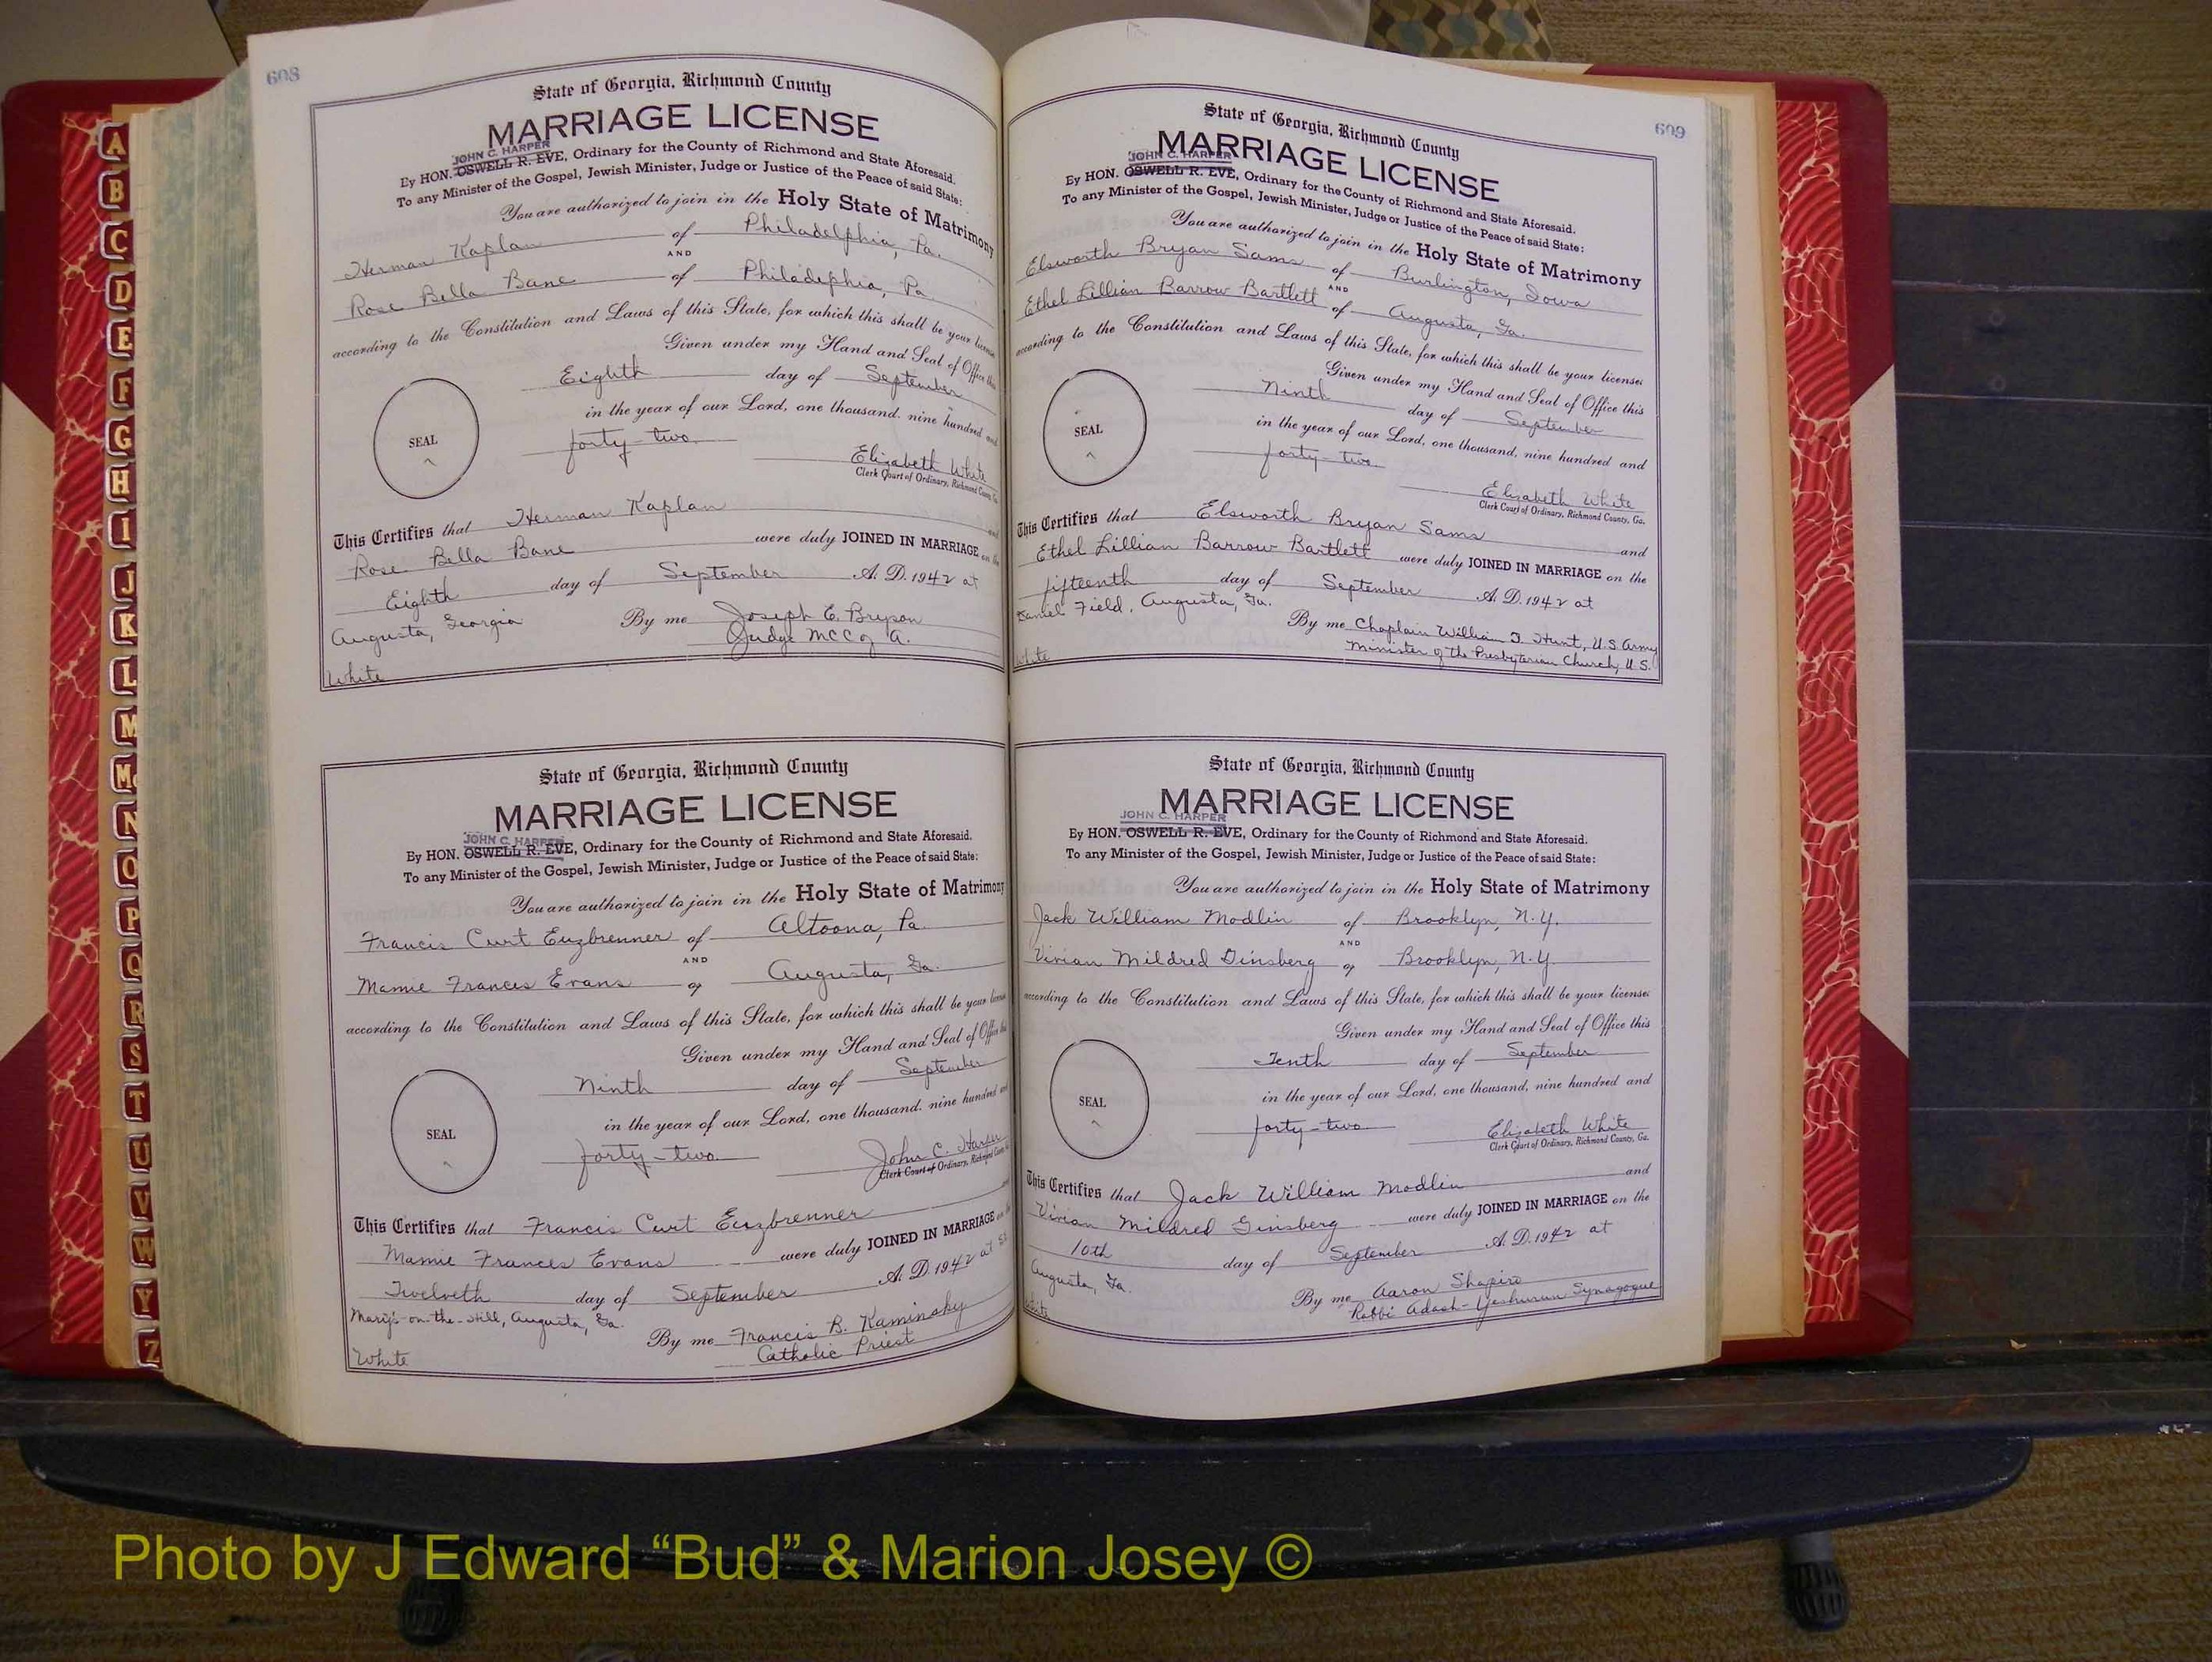 A
B
C
D
E
F
G
H
I
J
K
L
M
Mc
N
O
P
Q
R
S
T
U
V
W
Y
Z
608
State of Georgia, Richmond County
MARRIAGE LICENSE
JOHN C. HARPER
By HON. OSWELL R. EVE, Ordinary for the County of Richmond and State Aforesaid.
To any Minister of the Gospel, Jewish Minister, Judge or Justice of the Peace of said State:
You are authorized to join in the Holy State of Matrimony
Herman Kaplan of Philadelphia, Pa.
AND
Rose Bella Bane of Philadephia, Pa.
according to the Constitution and Laws of this State, for which this shall be your license
Given under my Hand and Seal of Office this
Eighth day of September
in the year of our Lord, one thousand, nine hundred and
SEAL
forty-two
Elizabeth White
Clerk Court of Ordinary, Richmond County, Ga.
This Certifies that Herman Kaplan and
Rose Bella Bane were duly JOINED IN MARRIAGE on the
Eighth day of September A. D. 1942 at
Augusta, Georgia By me Joseph E. Bryson
Judge MCCo, Ga.
White
State of Georgia, Richmond County
MARRIAGE LICENSE
JOHN C. HARPER
By HON. OSWELL R. EVE, Ordinary for the County of Richmond and State Aforesaid.
To any Minister of the Gospel, Jewish Minister, Judge or Justice of the Peace of said State:
You are authorized to join in the Holy State of Matrimony
Francis Curt Euzbrenner of Altoona, Pa.
AND
Mamie Frances Evans of Augusta, Ga.
according to the Constitution and Laws of this State, for which this shall be your license
Given under my Hand and Seal of Office this
Ninth day of September
in the year of our Lord, one thousand, nine hundred and
SEAL
forty-two
John C. Harper
Clerk Court of Ordinary, Richmond County
This Certifies that Francis Curt Euzbrenner
Mamie Frances Evans were duly JOINED IN MARRIAGE on
Twelveth day of September A. D. 1942 at St
Mary's-on-the-Hill, Augusta, Ga. By me Francis B. Kaminsky
Catholic Priest
White
609
State of Georgia, Richmond County
MARRIAGE LICENSE
JOHN C. HARPER
By HON. OSWELL R. EVE, Ordinary for the County of Richmond and State Aforesaid.
To any Minister of the Gospel, Jewish Minister, Judge or Justice of the Peace of said State:
You are authorized to join in the Holy State of Matrimony
Elsworth Bryan Sams of Burlington, Iowa
AND
Ethel Lillian Barrow Bartlett of Augusta, Ga.
according to the Constitution and Laws of this State, for which this shall be your license:
Given under my Hand and Seal of Office this
Ninth day of September
in the year of our Lord, one thousand, nine hundred and
SEAL
forty-two
Elizabeth White
Clerk Court of Ordinary, Richmond County, Ga.
This Certifies that Elsworth Bryan Sams and
Ethel Lillian Barrow Bartlett were duly JOINED IN MARRIAGE on the
fifteenth day of September A. D. 1942 at
Daniel Field, Augusta, Ga. By me Chaplain William J. Hunt, U.S. Army
Minister of the Presbyterian Church, U.S.
White
State of Georgia, Richmond County
MARRIAGE LICENSE
JOHN C. HARPER
By HON. OSWELL R. EVE, Ordinary for the County of Richmond and State Aforesaid.
To any Minister of the Gospel, Jewish Minister, Judge or Justice of the Peace of said State:
You are authorized to join in the Holy State of Matrimony
Jack William Modlin of Brooklyn, N.Y.
AND
Vivian Mildred Ginsberg of Brooklyn, N.Y.
according to the Constitution and Laws of this State, for which this shall be your license:
Given under my Hand and Seal of Office this
Tenth day of September
in the year of our Lord, one thousand, nine hundred and
SEAL
forty-two
Elizabeth White
Clerk Court of Ordinary, Richmond County, Ga.
This Certifies that Jack William Modlin and
Vivian Mildred Ginsberg were duly JOINED IN MARRIAGE on the
10th day of September A. D. 1942 at
Augusta, Ga. By me Aaron Shapiro
Rabbi Adash-Yeshurun Synagogue
White
Photo by J Edward “Bud” & Marion Josey ©